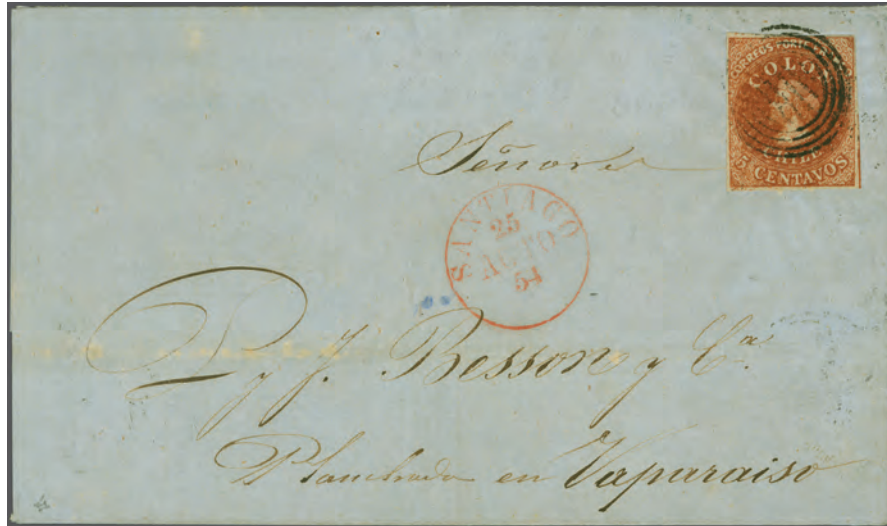 CORREOS PORTE
COLON
CHILE
5 CENTAVOS
Señores
SANTIAGO
25
AGTO
54
P. y J. Besson y Ca.
Planchada en Vaparaiso